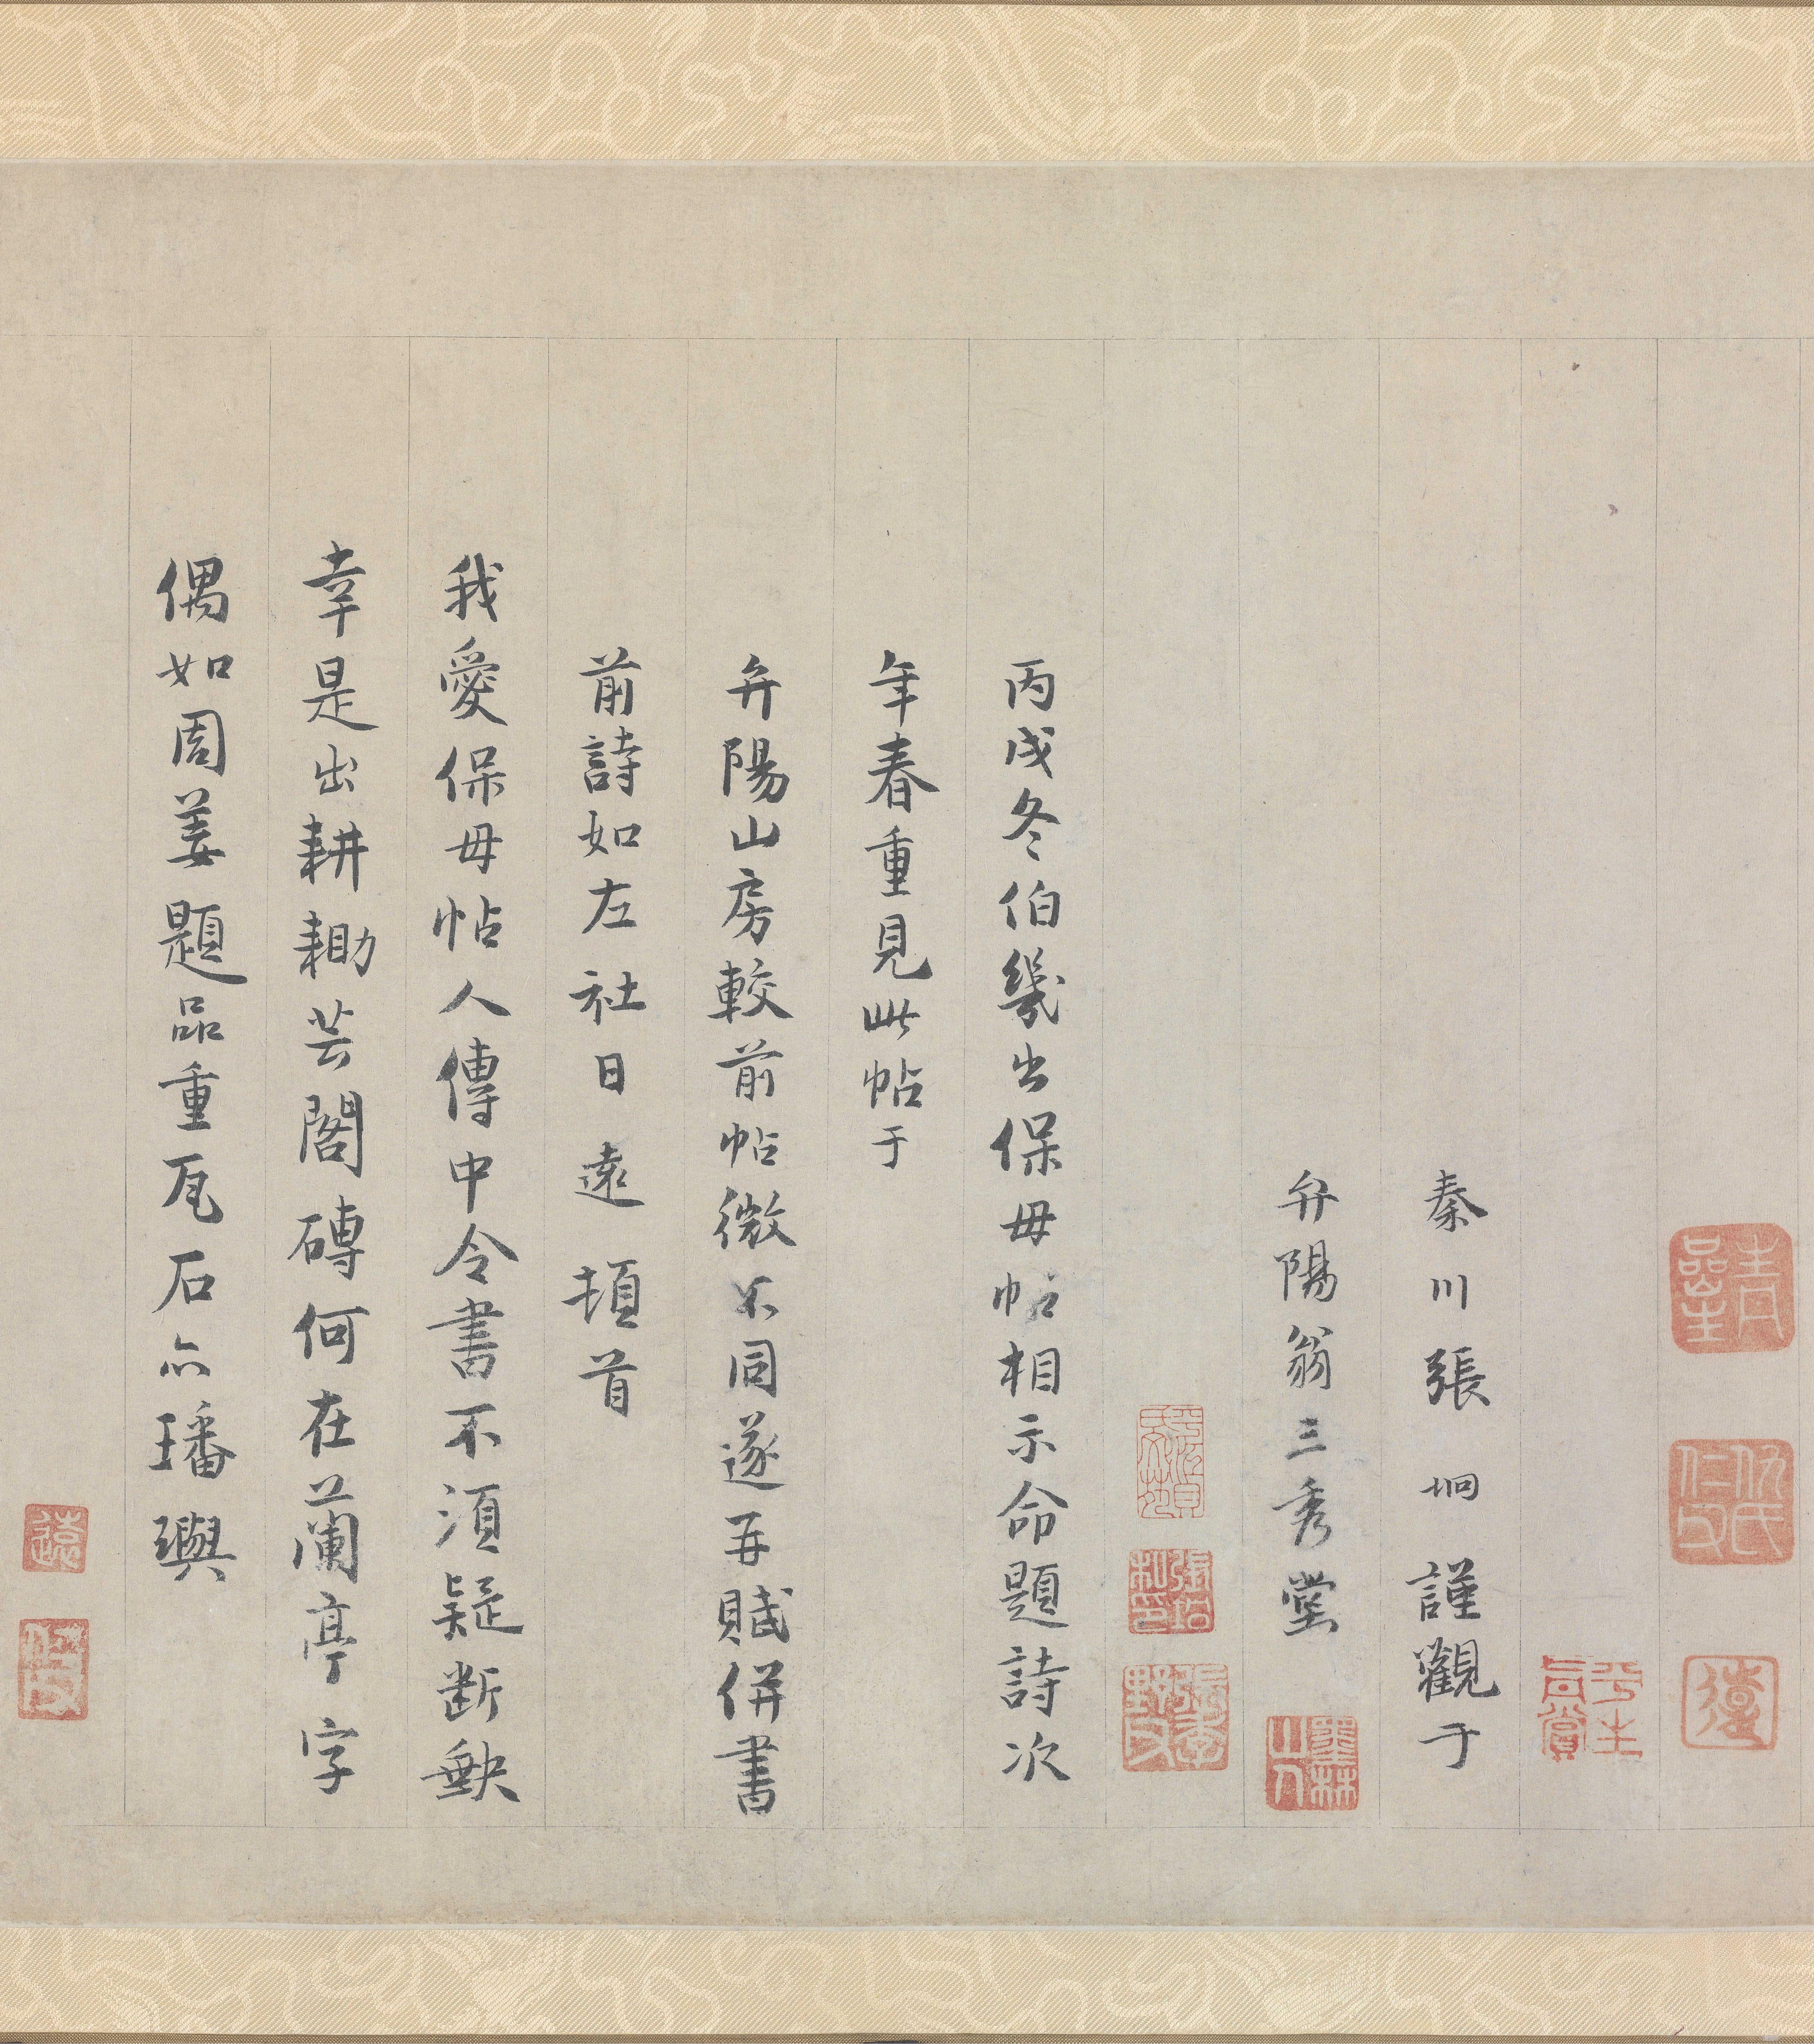 秦川張坰謹觀于
弁陽翁三秀堂
丙戌冬伯幾出保母帖相示命題詩次
年春重見此帖于
弁陽山房較前帖微不同遂再賦併書
前詩如左社日遠頓首
我愛保母帖人傳中令書不須疑断缺
幸是出耕耡芸閣磚何在蘭亭字
偶如周姜題品重瓦石亦璠璵
仇氏仁父
平生真賞
墨林山人
遠